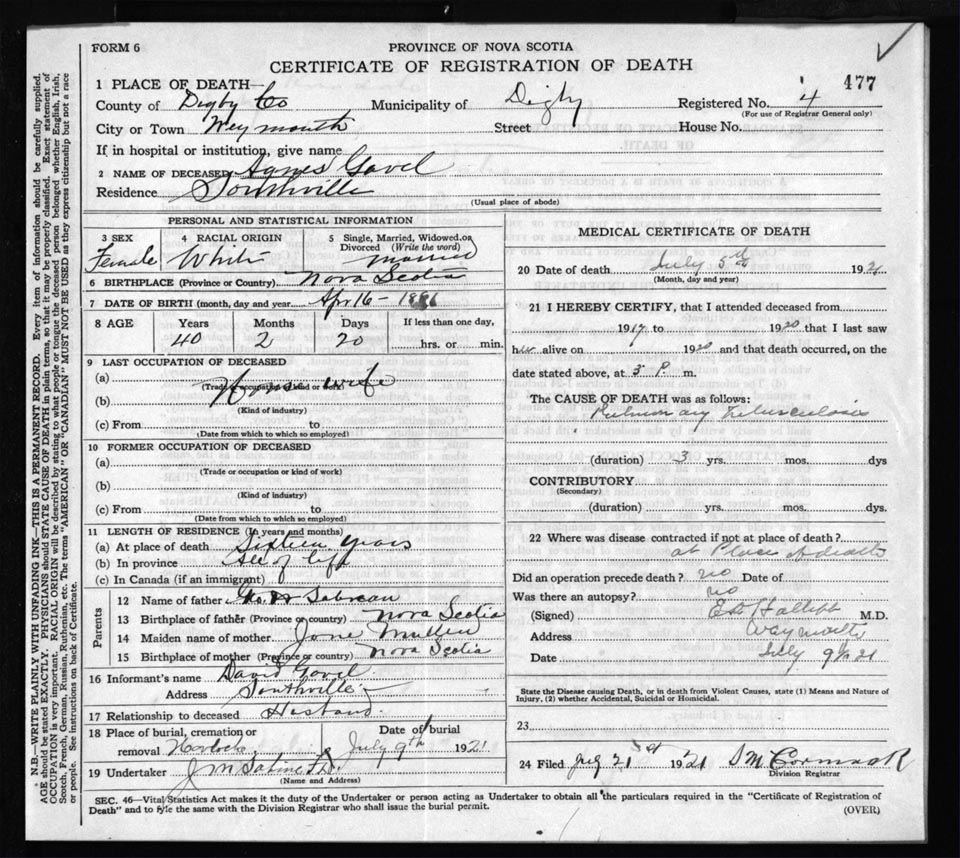 477
FORM 6
PROVINCE OF NOVA SCOTIA
CERTIFICATE OF REGISTRATION OF DEATH
1 PLACE OF DEATH—
County of Digby Co Municipality of Digby Registered No. 4
(For use of Registrar General only)
City or Town Weymouth Street House No.
If in hospital or institution, give name
2 NAME OF DECEASED Agnes Gavel
Residence Southville
(Usual place of abode)
PERSONAL AND STATISTICAL INFORMATION
3 SEX 4 RACIAL ORIGIN 5 Single, Married, Widowed or Divorced (Write the word)
Female White married
6 BIRTHPLACE (Province or Country) Nova Scotia
7 DATE OF BIRTH (month, day and year) Apr 16 - 1881
8 AGE Years Months Days If less than one day,
40 2 20 hrs. or min.
9 LAST OCCUPATION OF DECEASED
(a) House wife
(Trade or occupation or kind of work)
(b)
(Kind of industry)
(c) From to
(Date from which to which so employed)
10 FORMER OCCUPATION OF DECEASED
(a)
(Trade or occupation or kind of work)
(b)
(Kind of industry)
(c) From to
(Date from which to which so employed)
11 LENGTH OF RESIDENCE (In years and months)
(a) At place of death Sixteen years
(b) In province All of life
(c) In Canada (if an immigrant)
Parents
12 Name of father Sabean
13 Birthplace of father (Province or country) Nova Scotia
14 Maiden name of mother Jane Mullen
15 Birthplace of mother (Province or country) Nova Scotia
16 Informant's name David Gavel
Address Southville
17 Relationship to deceased Husband
18 Place of burial, cremation or removal Havelock Date of burial July 9th 1921
19 Undertaker J M
(Name and Address)
MEDICAL CERTIFICATE OF DEATH
20 Date of death July 5th 1921
(Month, day and year)
21 I HEREBY CERTIFY, that I attended deceased from
1917 to 1920 that I last saw
her alive on 1920 and that death occurred, on the
date stated above, at 3 P. m.
The CAUSE OF DEATH was as follows:
Pulmonary Tuberculosis
(duration) 3 yrs. mos. dys
CONTRIBUTORY
(Secondary)
(duration) yrs. mos. dys.
22 Where was disease contracted if not at place of death?
at Place of death
Did an operation precede death? no Date of
Was there an autopsy? no
(Signed) M.D.
Address Weymouth
Date July 9th 21
State the Disease causing Death, or in death from Violent Causes, state (1) Means and Nature of Injury, (2) whether Accidental, Suicidal or Homicidal.
23
24 Filed July 21st 1921 McCormack
Division Registrar
SEC. 46—Vital Statistics Act makes it the duty of the Undertaker or person acting as Undertaker to obtain all the particulars required in the "Certificate of Registration of
Death" and to file the same with the Division Registrar who shall issue the burial permit.
(OVER)
N.B.—WRITE PLAINLY WITH UNFADING INK—THIS IS A PERMANENT RECORD. Every item of information should be carefully supplied.
AGE should be stated EXACTLY. PHYSICIANS should STATE CAUSE OF DEATH in plain terms, so that it may be properly classified. Exact statement of
OCCUPATION is very important. RACIAL ORIGIN will be described by stating to what people or tongue the deceased person belonged whether English, Irish,
Scotch, French, German, Russian, Ruthenian, etc. The terms "AMERICAN" OR "CANADIAN" MUST NOT BE USED as they express citizenship but not a race
or people. See instructions on back of Certificate.